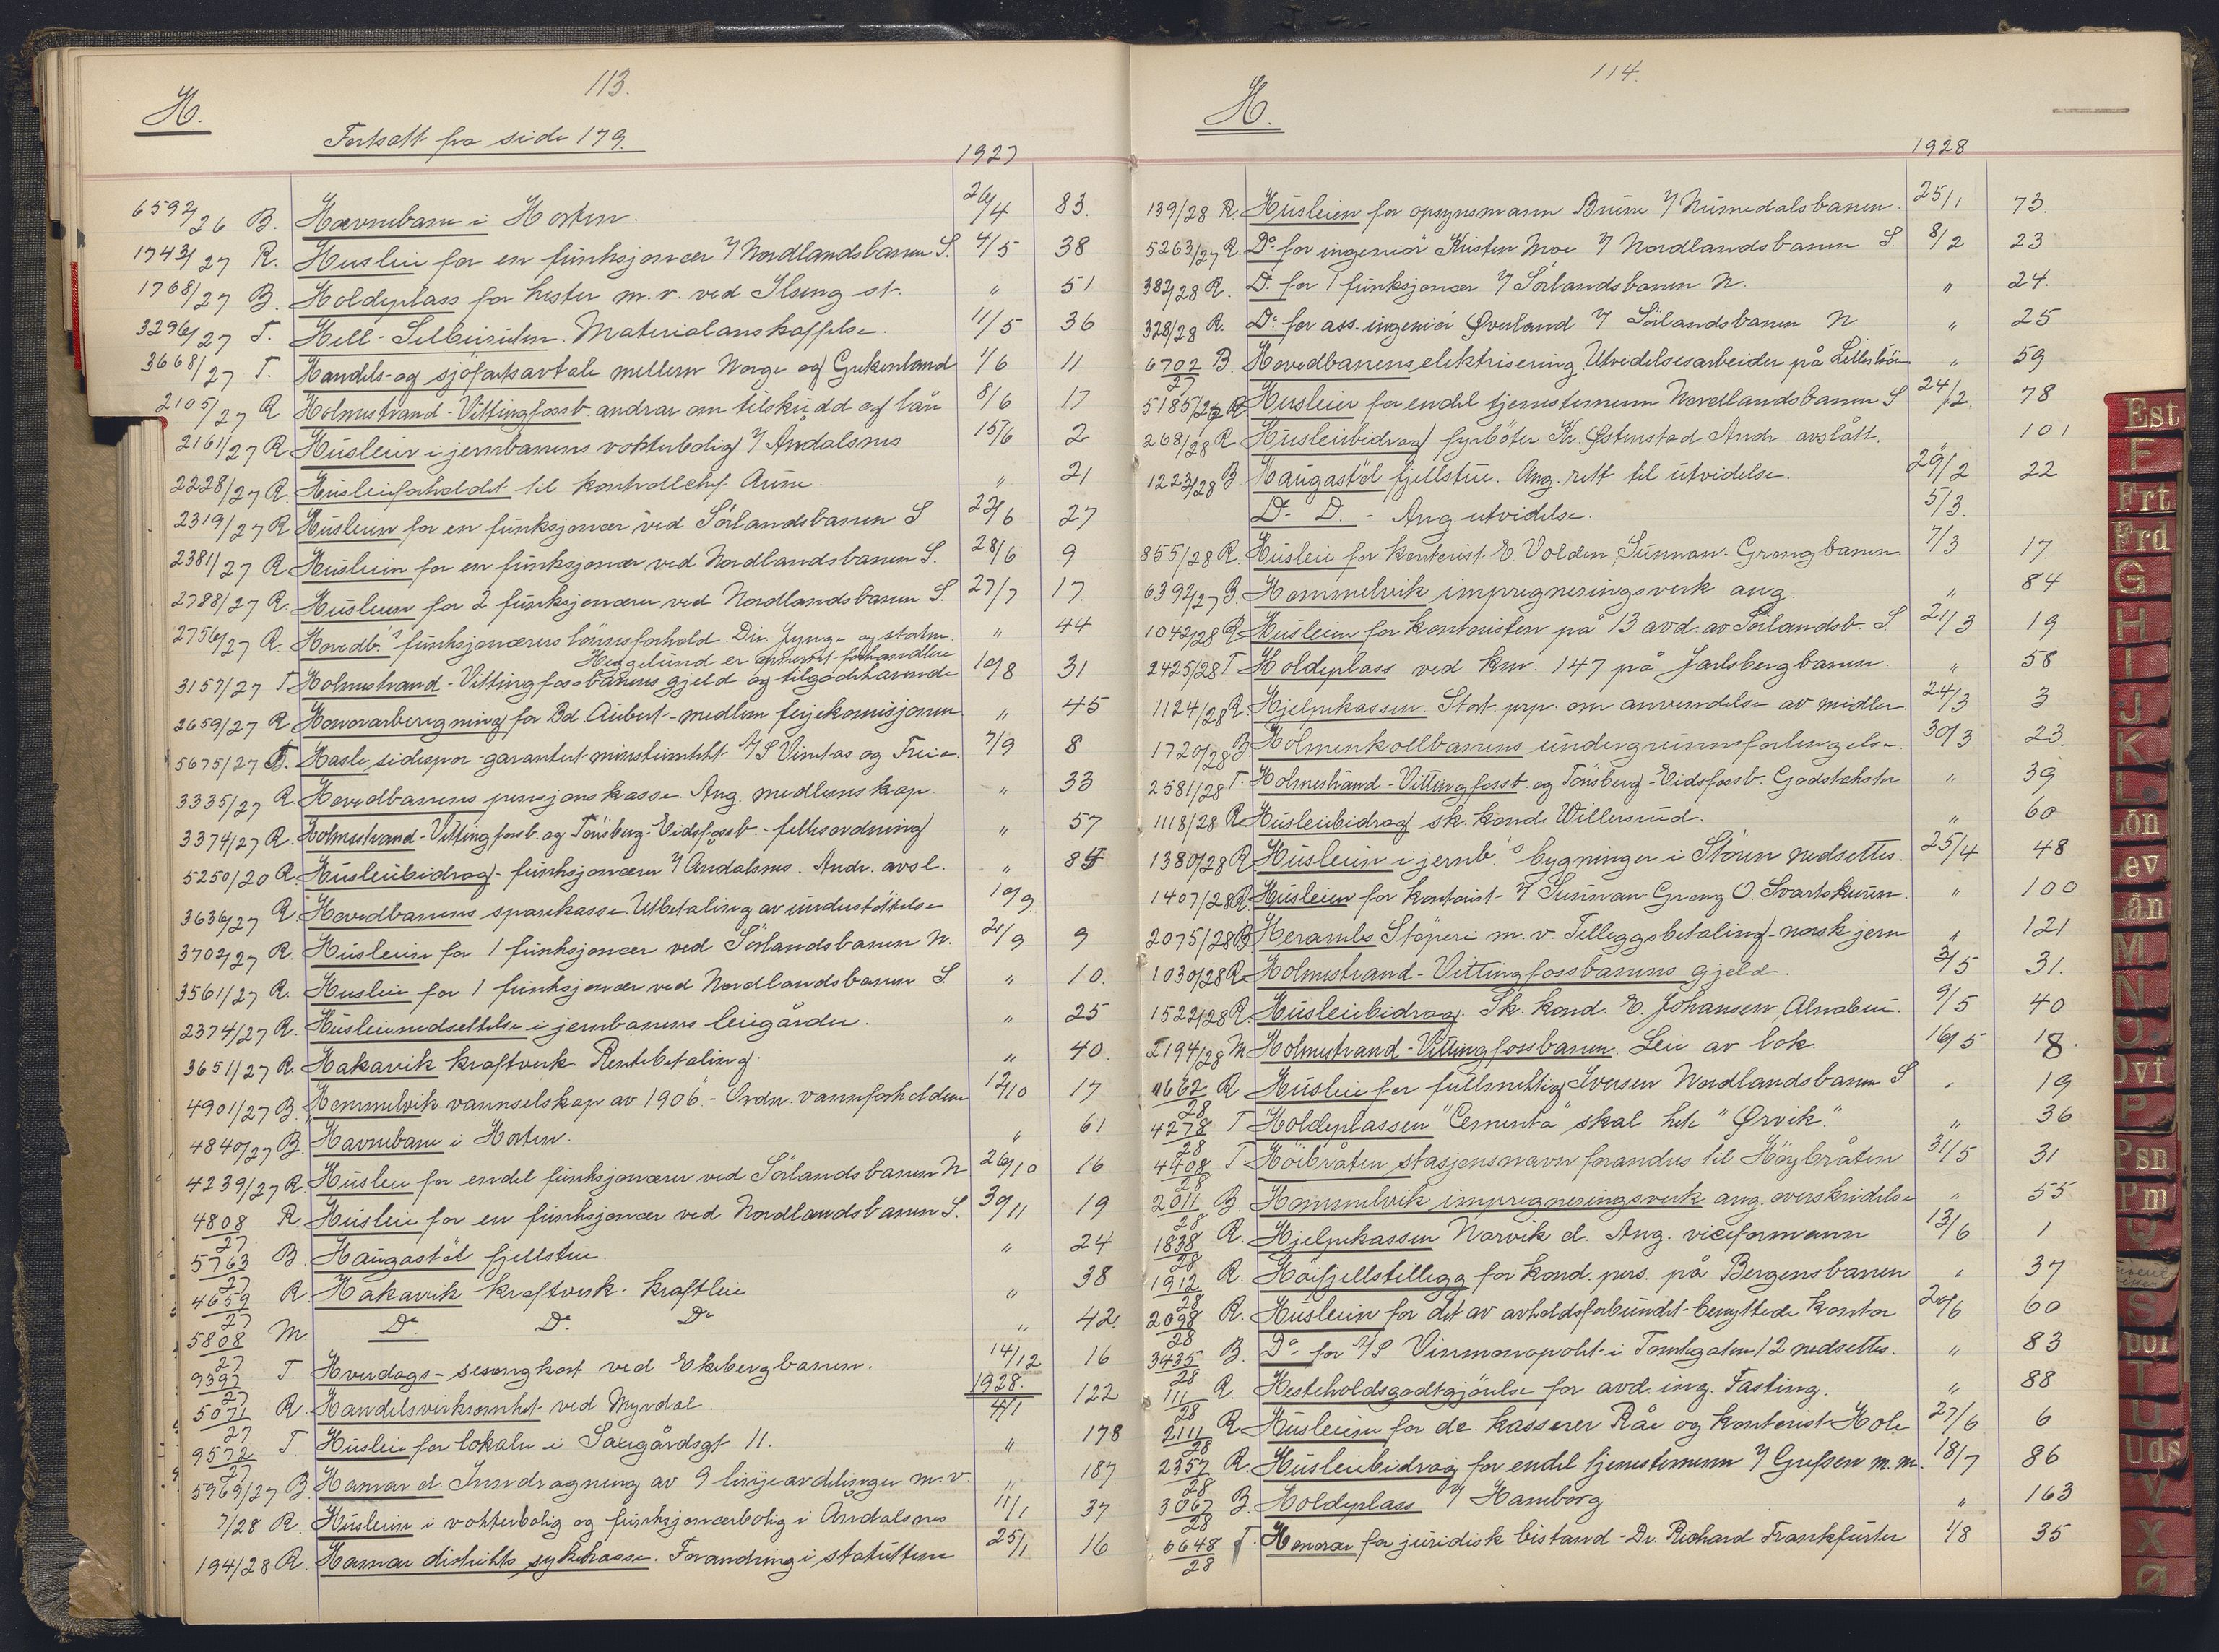 113.
H.
Fortsatt fra side 179.
1927
6592/26 B. Havnebane i Horten. 26/4 83.
1743/27 R. Husleie for en funksjonær v/ Nordlandsbanen S. 4/5 38
1768/27 B. Holdeplass for hester m.v. ved Ilseng st. " 51
3296/27 T. Hell-Selburuten. Materialanskaffelse. 11/5 36
3668/27 T. Handels- og sjöfartsavtale mellem Norge og Grekenland 1/6 11
2105/27 R Holmestrand-Vittingfossb. andrar om tilskudd og lån 8/6 17
2161/27 R Husleier i jernbanens vokterbolig v/ Åndalsnes 15/6 2
2228/27 R. Husleieforholdet til kontrollchef Aune. " 21
2319/27 R Husleien for en funksjonær ved Sörlandsbanen S 22/6 27
2381/27 R Husleien for en funksjonær ved Nordlandsbanen S. 28/6 9
2788/27 R. Husleien for 2 funksjonærer ved Nordlandsbanen S. 27/7 17.
2756/27 R. Hovedb.s funksjonærers lönnsforhold. Dir. Jynge og statm. " 44
Heggelund er opnevnt forhandlere
3157/27 T Holmestrand-Vittingfossbanens gjeld og tilgodehavende 10/8 31
2659/27 R Honorarberegning for Bd. Aubert - medlem ferjekomisjonen " 45
5675/27 T. Hasle sidespor garantert minsteinntekt A/S Vinitas og Freia 7/9 8
3335/27 R Hovedbanens pensjonskasse. Ang. medlemskap. " 33
3374/27 R. Holmestrand-Vittingfossb. og Tönsberg-Eidsfossb. - fellesordning " 57
5250/20 R. Husleiebidrag - funksjonærer v/ Åndalsnes. Andr. avsl. " 85
3636/27 R. Hovedbanens sparekasse. Utbetaling av understöttelse 10/9
3702/27 R. Husleien for 1 funksjonær ved Sörlandsbanen N. 21/9 9
3561/27 R. Husleie for 1 funksjonær ved Nordlandsbanen S. " 10.
2374/27 R. Husleienedsettelse i jernbanens leiegårder. " 25
3651/27 R. Hakavik kraftverk Rentebetaling. " 40.
4901/27 B. Hommelvik vannselskap av 1906 - Ordn. vannforholdene 12/10 17
4840/27 B. Havnebane i Horten. " 61
4239/27 R. Husleie for endel funksjonærer ved Sörlandsbanen N 26/10 16
4808/27 R. Husleie for en funksjonær ved Nordlandsbanen S. 30/11 19
5763/27 B Haugastöl fjellstue. " 24
4659/27 R. Hakavik kraftverk - kraftleie " 38
5808/27 M. Do. Do. Do " 42.
9397/27 T. Hverdags-sesongkort ved Ekebergbanen. 14/12 16
1928.
5071/27 R. Handelsvirksomhet ved Myrdal. 4/1 122
9572/27 T. Husleie for lokaler i Saugårdsgt 11. " 178
5969/27 B. Hamar d. Inndragning av 9 linjeavdelinger m.v. " 187.
7/28 R. Husleien i vokterbolig og funksjonærbolig i Åndalsnes 11/1 37
194/28 R. Hamar distrikts sykekasse. Forandring i statuttene 25/1 16
114.
H.
1928
139/28 R. Husleien for opsynsmann Brune v/ Numedalsbanen. 25/1 73.
5263/27 R. Do. for ingeniör Kristen Moe v/ Nordlandsbanen S. 8/2 23
382/28 R. D. for 1 funksjonær v/ Sörlandsbanen N. " 24.
328/28 R. Do. for ass. ingeniör Øverland v/ Sörlandsbanen N. " 25
6702/27 B. Hovedbanens elektrisering. Utvidelsesarbeider på Lilleströ " 59
5185/26 R Husleier for endel tjenestemenn Nordlandsbanen S 24/2. 78
268/28 R Husleiebidrag fyrböter Kr. Østenstad Andr avslått. " 101
1223/28 B Haugastöl fjellstue. Ang. rett til utvidelse. 29/2 22
D. D. - Ang. utvidelse. 5/3.
855/28 R. Husleie for kontorist E. Volden, Sunnan-Grongbanen. 7/3 17.
6392/27 B. Hommelvik impregneringsverk ang. " 84
1042/28 R Husleien for kontoristen på 13 avd. av Sörlandsb. S. 21/3 19
2425/28 T Holdeplass ved km. 147 på Jarlsbergbanen. " 58
1124/28 R. Hjelpekassen. Stort. prp. om anvendelse av midler. 24/3 3
1720/28 B Holmenkollbanens undergrunnsforlengelse. 30/3 23.
2581/28 T. Holmestrand-Vittingfossb. og Tönsberg-Eidsfossb. Godstakster " 39
1118/28 R Husleiebidrag sk. kond. Willersrud. " 60
1380/28 R Husleien i jernb.s bygninger i Stören nedsettes. 25/4 48
1407/28 R Husleien for kontorist v/ Sunnan-Grong O. Svartskuren. " 100
2075/28 B Herambs Stöperi m.v. Tilleggsbetaling - norsk jern " 121
1030/28 R Holmestrand-Vittingfossbanens gjeld. 3/5 31.
1522/28 R. Husleiebidrag. Sk. kond. E. Johansen, Alnabru. 9/5 40
2194/28 M Holmestrand-Vittingfossbanen. Leie av lok. 16/5 18.
1662/28 R Husleie for fullmektig Iversen Nordlandsbanen S " 19
4278/28 T Holdeplassen "Cementa" skal hete "Ørvik." " 36
4408/28 T Höibråten stasjonsnavn forandres til Höybråten 31/5 31
2011/28 B. Hommelvik impregneringsverk ang. overskridelse " 55
1838/28 R. Hjelpekassen Narvik d. Ang. viceformann 13/6 1
1912/28 R. Höifjellstillegg for kond. pers. på Bergensbanen " 37
2098/28 R. Husleien for det av avholdsforbundet benyttede kontor 20/6 60
3435/28 B. Do. for A/S Vinmonopolet i Tomtegaten 12 nedsettes. " 83
111/28 R. Hesteholdsgodtgjörelse for avd. ing. Fasting. " 88
2111/28 R Husleien for de. kasserer Råe og kontorist Hole 27/6 6
2357/28 R. Husleiebidrag for endel tjenestemenn v/ Grefsen m.m. 18/7 86
3067/28 B. Holdeplass v/ Hamborg " 163
6648/28 T. Honorar for juridisk bistand - Dr. Richard Frankfurter 1/8 35
Est
F
Frt
Frd
G
H
I
J
K
L
Lön
Lev
Lån
M
N
O
Ovf
P
Psn
Pm
Q
S
Spor
T
U
Uds
V
X
Ø